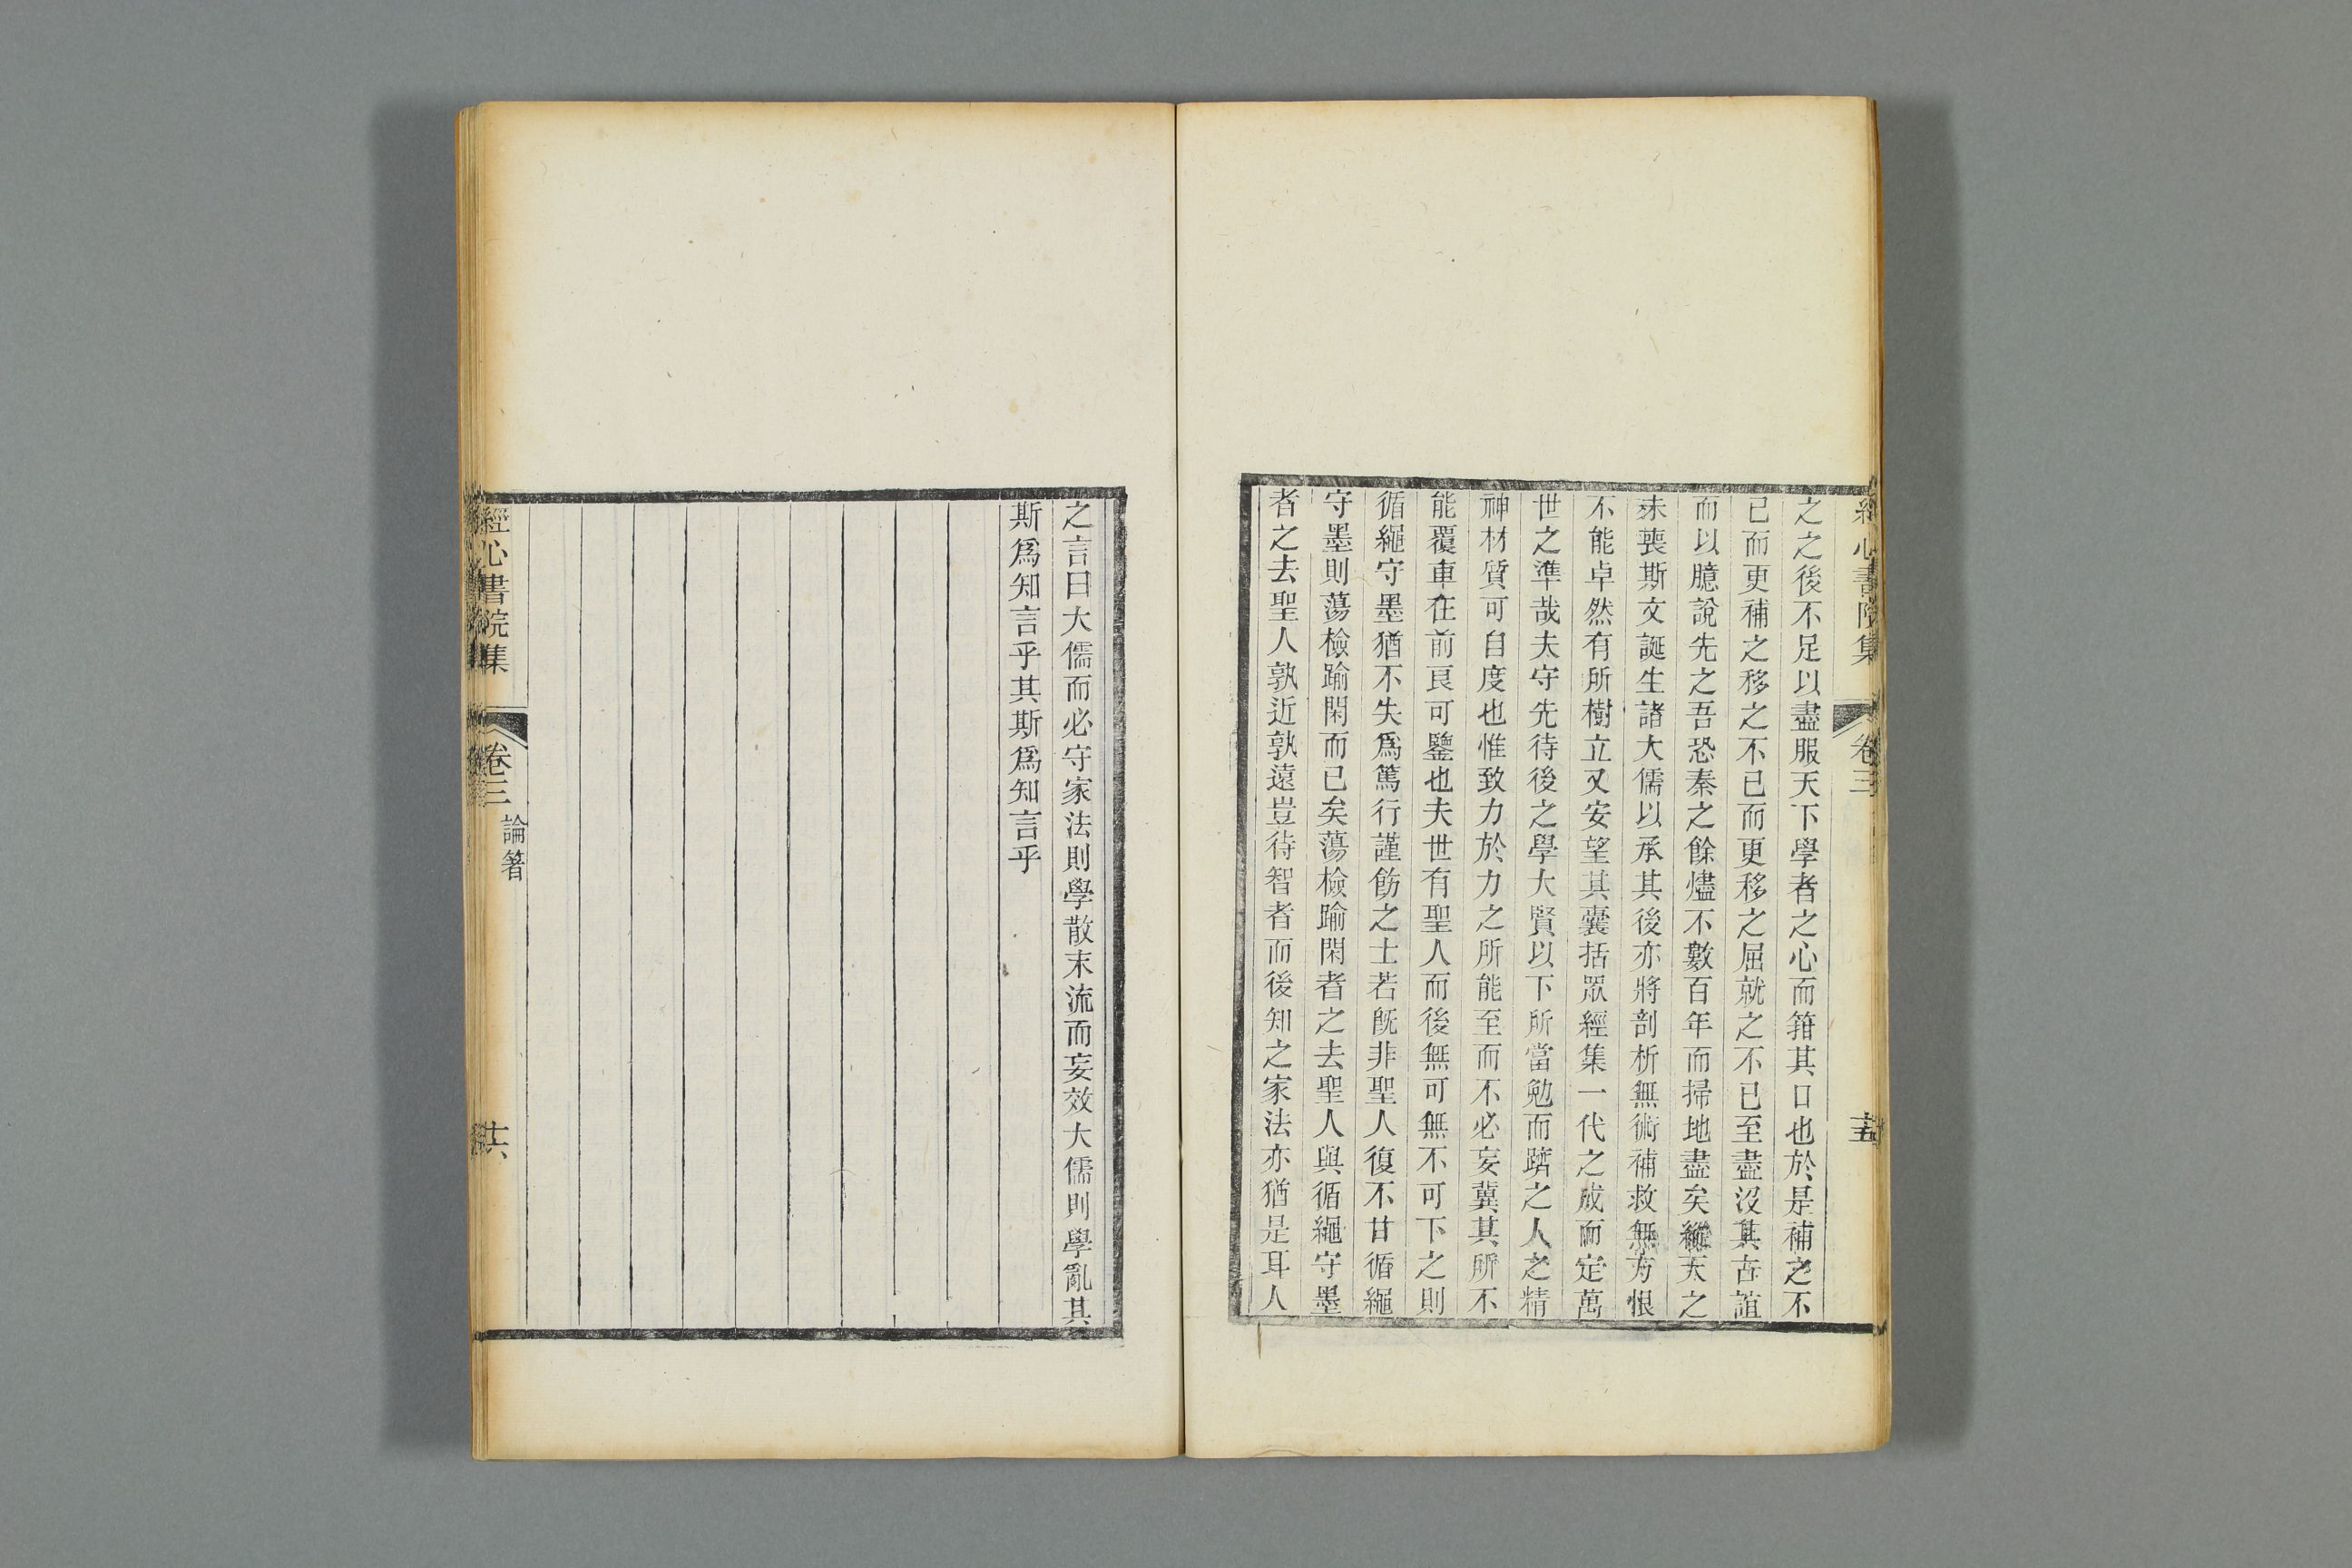 經心書院集 卷三 十五
之之後不足以盡服天下學者之心而箝其口也於是補之不
已而更補之移之不已而更移之屈就之不已至盡沒其古誼
而以臆說先之吾恐秦之餘燼不數百年而掃地盡矣縱天之
未喪斯文誕生諸大儒以承其後亦將剖析無術補救無方恨
不能卓然有所樹立又安望其囊括眾經集一代之成而定萬
世之準哉夫守先待後之學大賢以下所當勉而躋之人之精
神材質可自度也惟致力於力之所能至而不必妄冀其所不
能覆車在前良可鑒也夫世有聖人而後無可無不可下之則
循繩守墨猶不失爲篤行謹飭之士若旣非聖人復不甘循繩
守墨則蕩檢踰閑而已矣蕩檢踰閑者之去聖人與循繩守墨
者之去聖人孰近孰遠豈待智者而後知之家法亦猶是耳人
之言曰大儒而必守家法則學散末流而妄效大儒則學亂其
斯爲知言乎其斯爲知言乎
經心書院集 卷三 論箸 十六